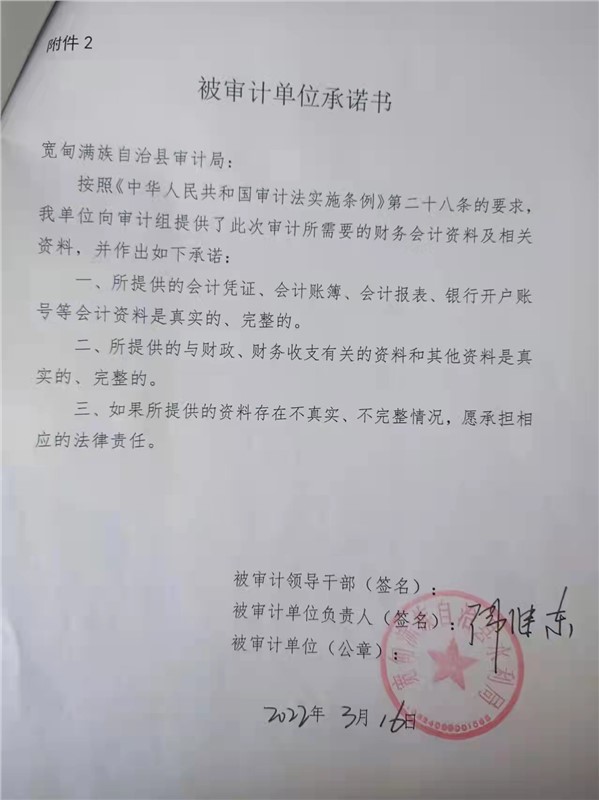 附件2
被审计单位承诺书
宽甸满族自治县审计局：
按照《中华人民共和国审计法实施条例》第二十八条的要求，
我单位向审计组提供了此次审计所需要的财务会计资料及相关
资料，并作出如下承诺：
一、所提供的会计凭证、会计账簿、会计报表、银行开户账
号等会计资料是真实的、完整的。
二、所提供的与财政、财务收支有关的资料和其他资料是真
实的、完整的。
三、如果所提供的资料存在不真实、不完整情况，愿承担相
应的法律责任。
被审计领导干部（签名）：
被审计单位负责人（签名）：
被审计单位（公章）：
宽甸满族自治县水利局
2022年 3月 16日